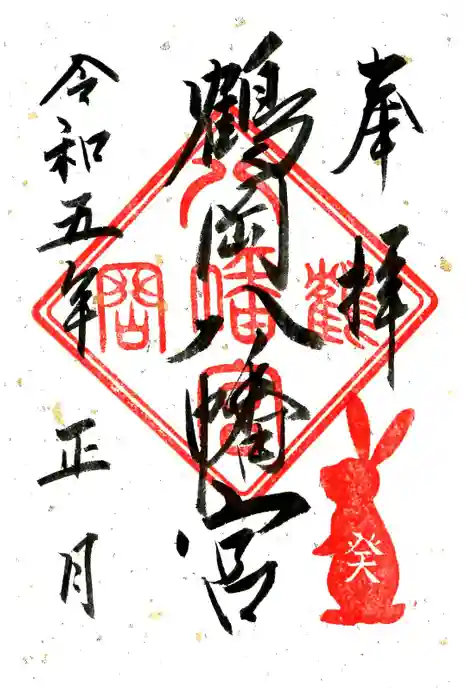 奉拝
鶴岡八幡宮
令和五年正月
鶴
岡
八
幡
宮
癸